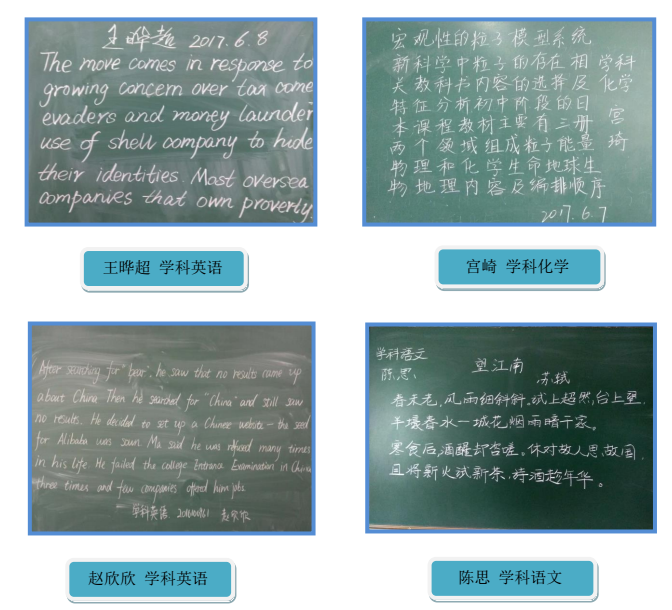 王晔超 2017.6.8
The move comes in response to
growing concern over tax come
evaders and money launder
use of shell company to hide
their identities. Most oversea
companies that own proverty.
王晔超 学科英语
宏观性的粒子模型系统
新科学中粒子的存在相 学科
关教科书内容的选择及 化学
特征分析初中阶段的日
本课程教材主要有三册 宫
两个领域组成粒子能量 琦
物理和化学生命地球生
物地理内容及编排顺序
2017.6.7
宫崎 学科化学
After searching for "bear", he saw that no results came up
about China. Then he searched for "China" and still saw
no results. He decided to set up a Chinese website - the seed
for Alibaba was sown. Ma said he was refused many times
in his life. He failed the college Entrance Examination in China
three times and few companies offered him jobs.
学科英语 赵欣欣
赵欣欣 学科英语
学科语文
陈思
望江南
苏轼
春未老,风雨细斜斜。试上超然台上望,
半壕春水一城花。烟雨暗千家。
寒食后,酒醒却咨嗟。休对故人思故国,
且将新火试新茶,诗酒趁年华。
陈思 学科语文